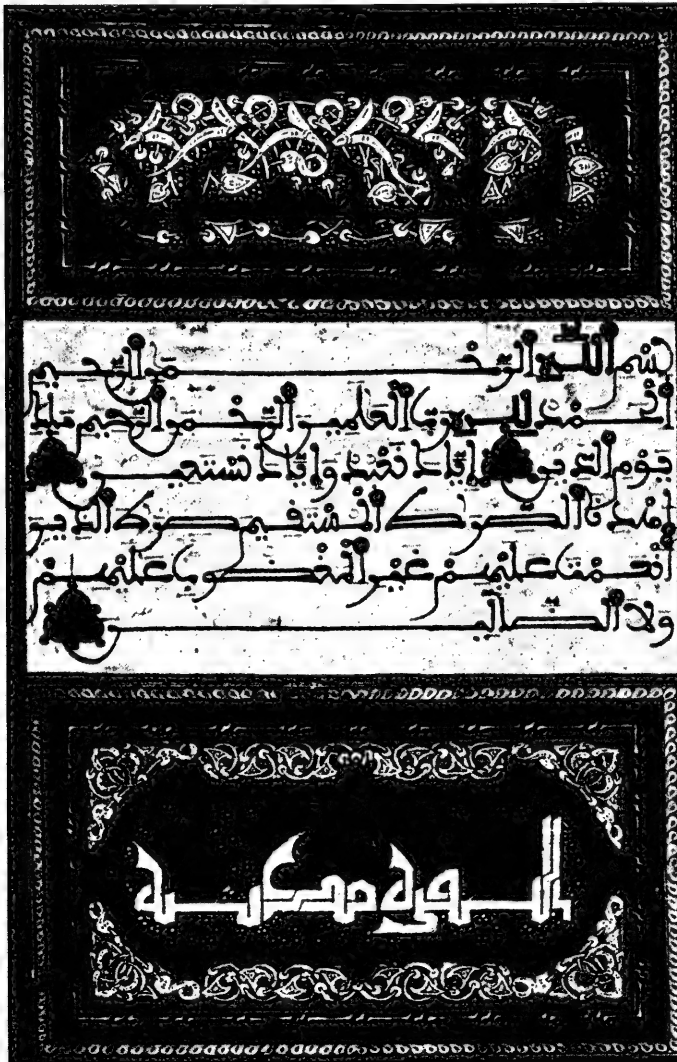 بسم الله الرحمن الرحيم
الحمد لله رب العلمين الرحمن الرحيم ملك
يوم الدين اياك نعبد واياك نستعين
اهدنا الصراط المستقيم صراط الذين
انعمت عليهم غير المغضوب عليهم
ولا الضالين